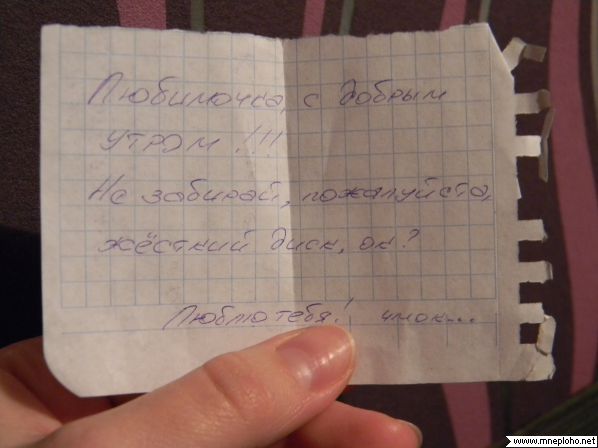 Любимочка, с добрым
утром!!!
Не забирай, пожалуйста,
жёсткий диск, ок?
Люблю тебя! чмок...
www.mneploho.net